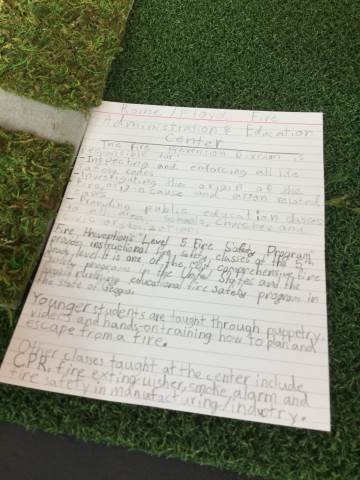 Rome/Floyd Fire
Administration & Education
Center
The Fire Prevention Bureau is
responsible for
- Inspecting and enforcing all life
safety codes.
- Investigating the origin of the
fire, its cause and arson related
cases
- Providing public education classes
to all area schools, churches and
civic organizations
Fire Prevention's Level 5 Fire Safety Program
provides instructional fire safety classes at the 5
grade level. It is one of the most comprehensive fire
safety programs in the United States and the
longest running educational fire safety program in
the state of Georgia.
Younger students are taught through puppetry,
videos and hands-on training how to plan and
escape from a fire.
Other classes taught at the center include
CPR, fire extinguisher, smoke, alarm and
fire safety in manufacturing/industry.